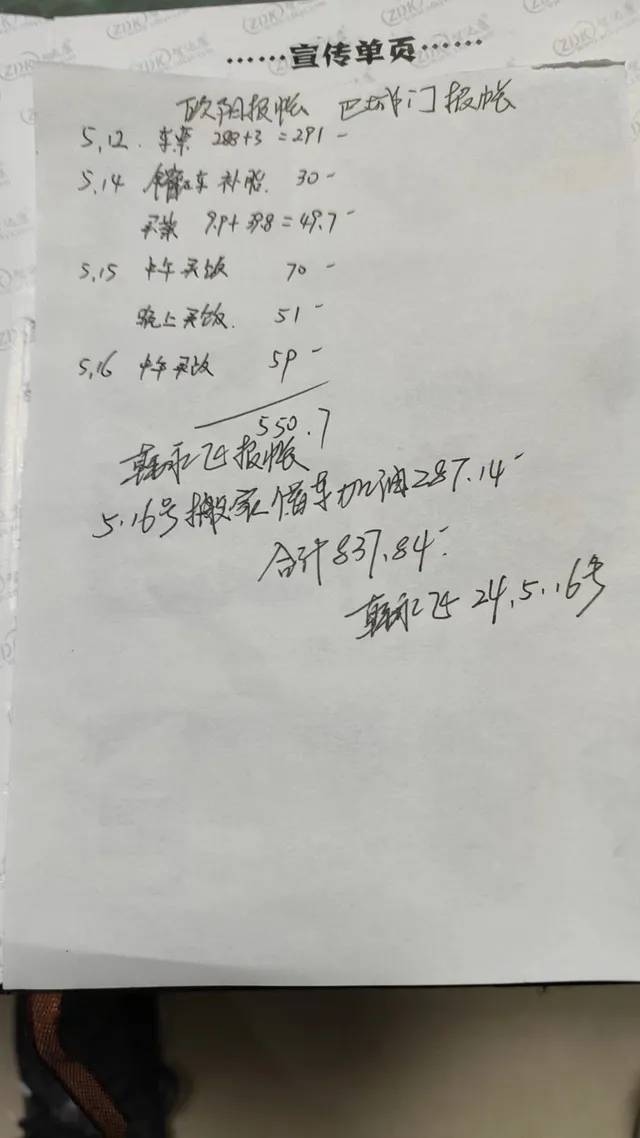 ……宣传单页……
欧阳报帐 巴城门报帐
5,12. 车票 288+3 =291 -
5,14 车补胎. 30 -
买菜 9.9+39.8=49.7 -
5,15 中午买饭 70 -
晚上买饭. 51 -
5,16 中午买饭 59 -
550.7
韩永飞报帐
5.16号搬家借车加油287.14 -
合计837.84 -
韩永飞 24.5.16号